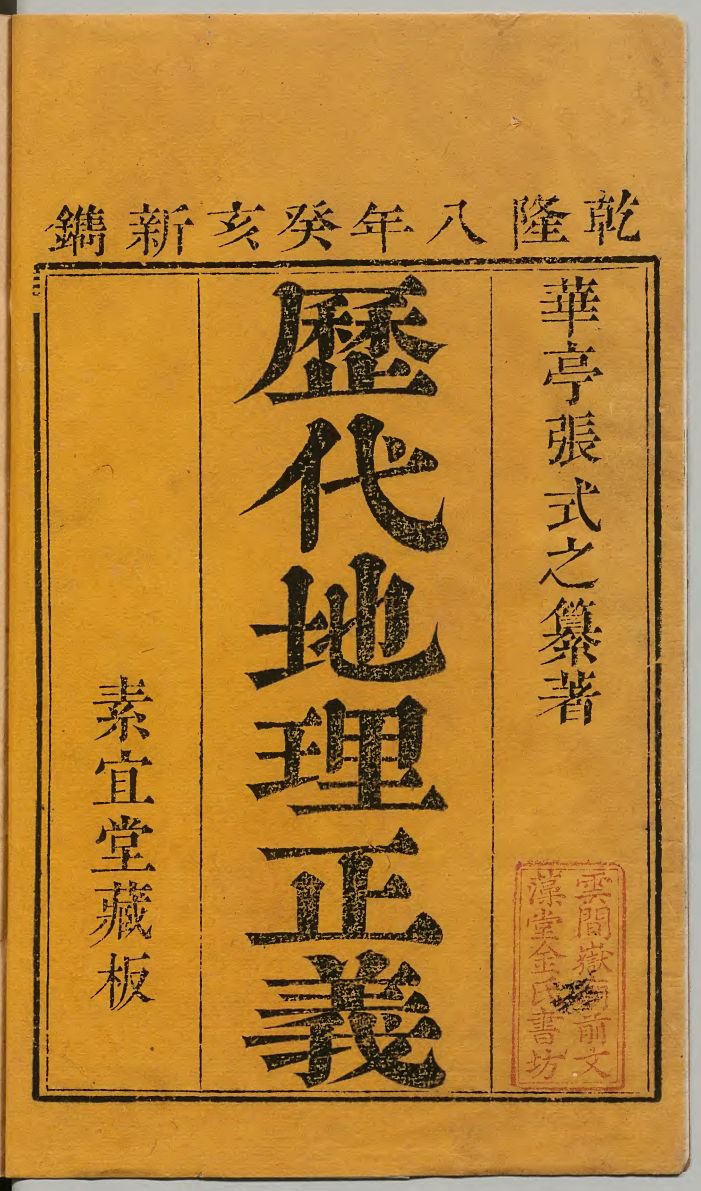 乾隆八年癸亥新鐫
華亭張式之纂著
歷代地理正義
素宜堂藏板
雲間嶽廟前文
藻堂金氏書坊